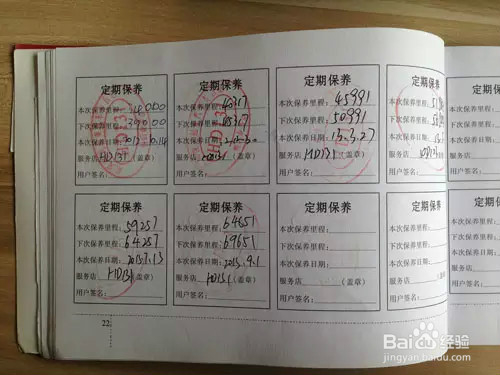 定期保养
本次保养里程:
下次保养里程:
本次保养日期:
服务店 HD131 (盖章)
用户签名:
定期保养
本次保养里程:
下次保养里程:
本次保养日期:
服务店 HD131 (盖章)
用户签名:
定期保养
本次保养里程: 45991
下次保养里程: 50991
本次保养日期: 13.3.27
服务店 HD131 (盖章)
用户签名:
定期保养
本次保养里程:
下次保养里程:
本次保养日期:
服务店 HD131
用户签名:
定期保养
本次保养里程: 59257
下次保养里程: 64257
本次保养日期: 2013.7.13
服务店 HD131 (盖章)
用户签名:
定期保养
本次保养里程: 64651
下次保养里程: 69651
本次保养日期: 2013.9.1
服务店 HD131 (盖章)
用户签名:
定期保养
本次保养里程:
下次保养里程:
本次保养日期:
服务店 (盖章)
用户签名:
定期保养
本次保养里程:
下次保养里程:
本次保养日期:
服务店
用户签名:
22
Baidu 经验
jingyan.baidu.com